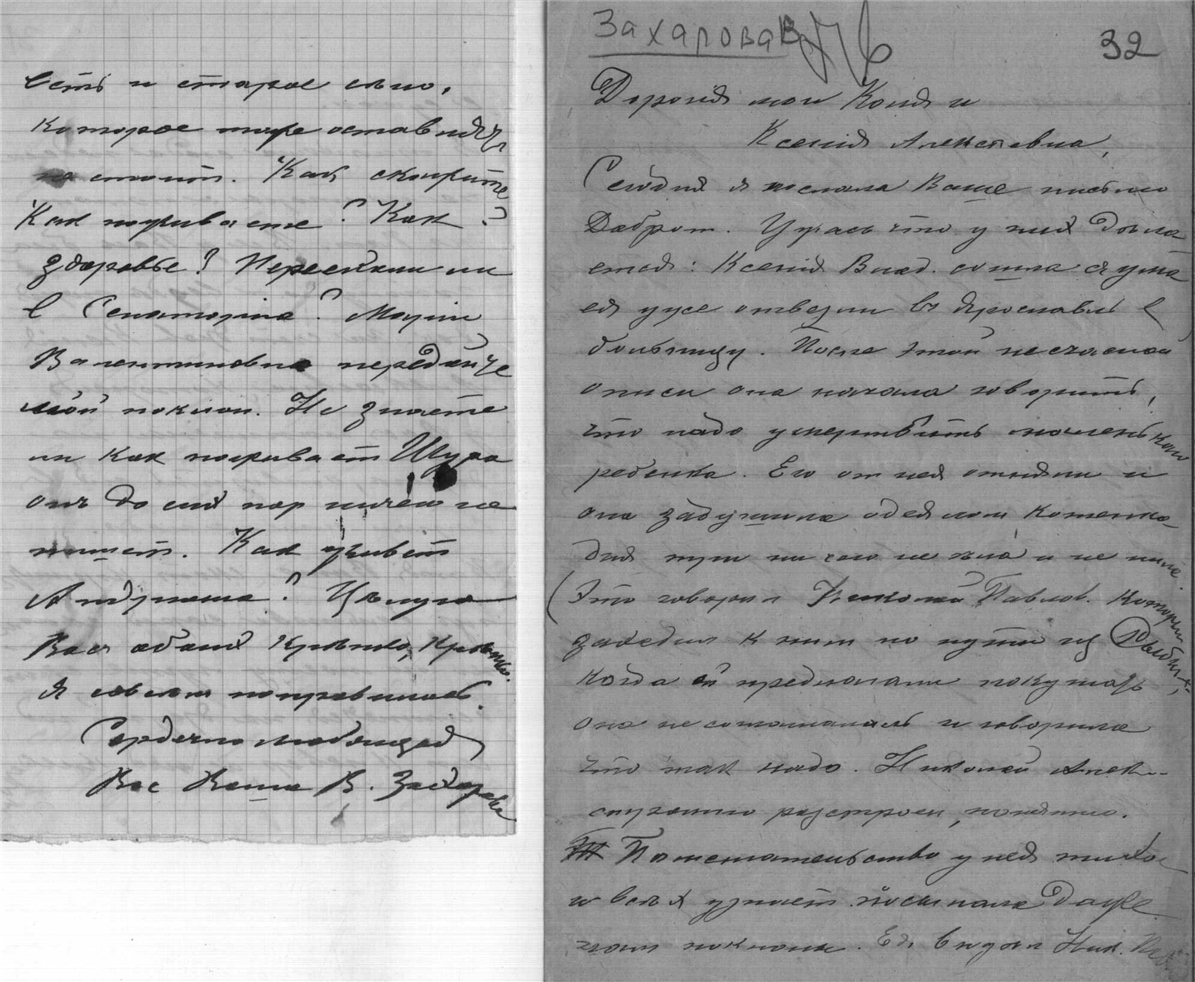 есть и старое сено,
которое тоже оставляя
стоит. Какъ
Как поживаете? Как
здоровье? Переехали ли
в Сенаторна? Марии
Валентиновне передайте
мой поклон. Не знаете
ли как поживает Шура
онъ до сих пор ничего не
пишет. Какъ живет
Андрюша? Целую
Вас обоих крепко, крепко.
Я совсем поправилась.
Сердечно любящая
Вас Ваша В. Захарова
Захарова В. 32
Дорогия мои Коля и
Ксения Алексеевна,
Сегодня я послала Ваше письмо
Доброт. Ужасъ что у них дела
ется: Ксения Влад. сошла с ума
ея уже отвезли въ Ярославль в
больницу. После этой несчасной
описи она начала говорить,
что надо умертвить маленькаго
ребенка. Его от нея отняли и
она задушила одеялом котенка
дня три ничего не ела и не пила.
(Это говорил Николай Павлов. который
заходил к ним по пути из Рыбин.
Когда ей предлагали покушать
она не соглашалась и говорила
что так надо. Николай Алек-
страшно разстроен, понятно.
Помешательство у нея тихое
и всех узнает посылала даже
поклоны. Ея видел Ник. Пав.